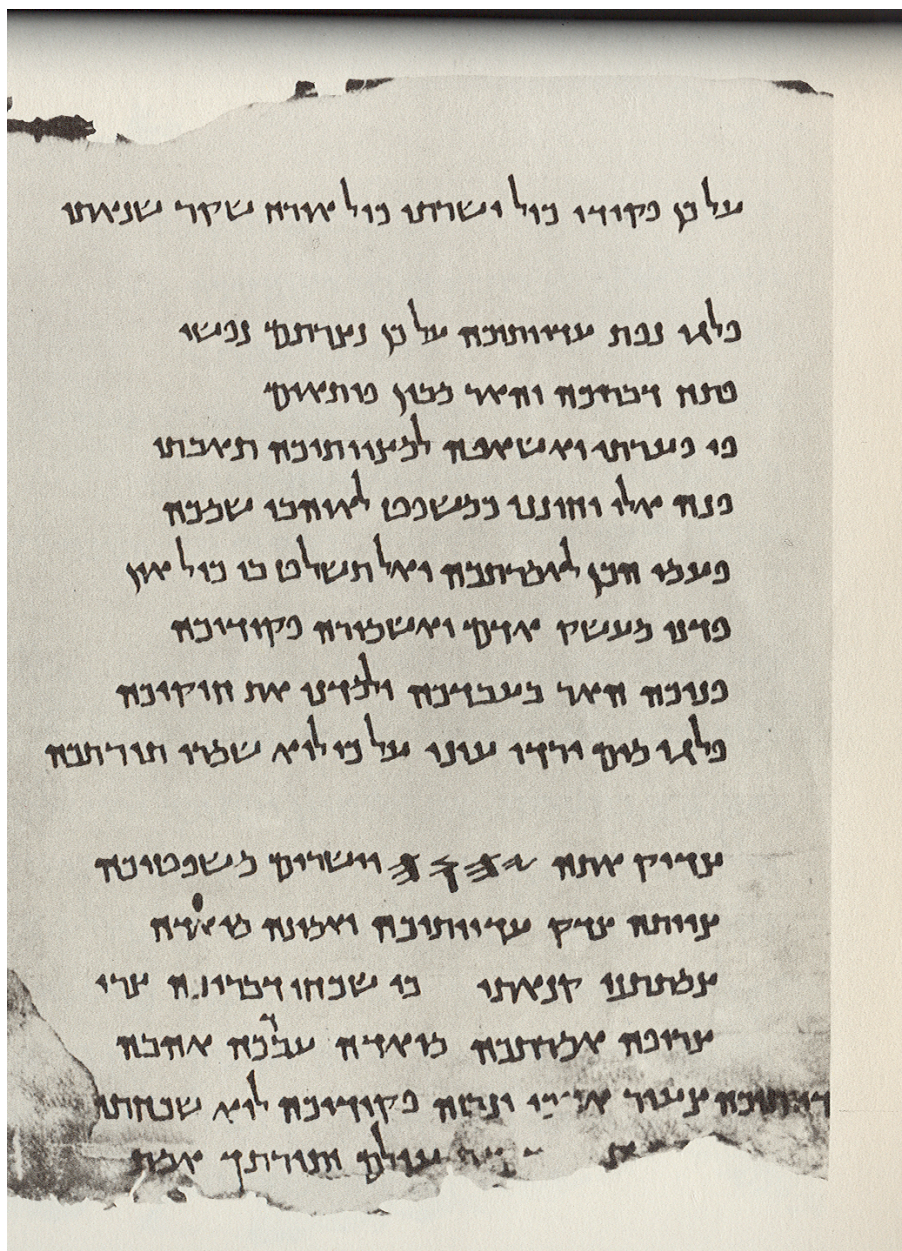 על כן פקודי כול ישרתי כול אורח שקר שנאתי
פלגי נפת עדוותיכה על כן נצרתם נפשי
פתח דבריכה והאר מבין פותאים
פי פערתי ואשאפה למצוותיכה תאבתי
פנה אלי וחונני כמשפט לאוהבי שמכה
פעמי הכן לאמרתכה ואל תשלט בי כול און
פדני מעשק אדם ואשמורה פקודיכה
פניכה האר בעבדכה ולמדני את חוקיכה
פלגי מים ירדו עיני על כי לוא שמרו תורתכה
צדיק אתה 𐤉𐤄𐤅𐤄 וישרים משפטיכה
צויתה צדק עדוותיכה ואמונה מואדה
צמתתני קנאתי כי שכחו דבריכה צרי
צרופה אמרתכה מואדה עבדכה אהבה
צעיר אנוכי ונבזה פקודיכה לוא שכחתי
עולם ותורתך אמת